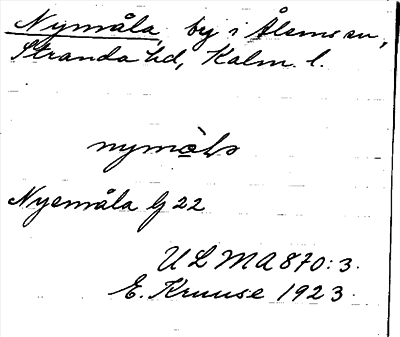 Nymåla, by i Ålems sn,
Stranda hd, Kalm. l.
nymòls
Nyemåla G 22
ULMA 870:3.
E. Kruuse 1923.